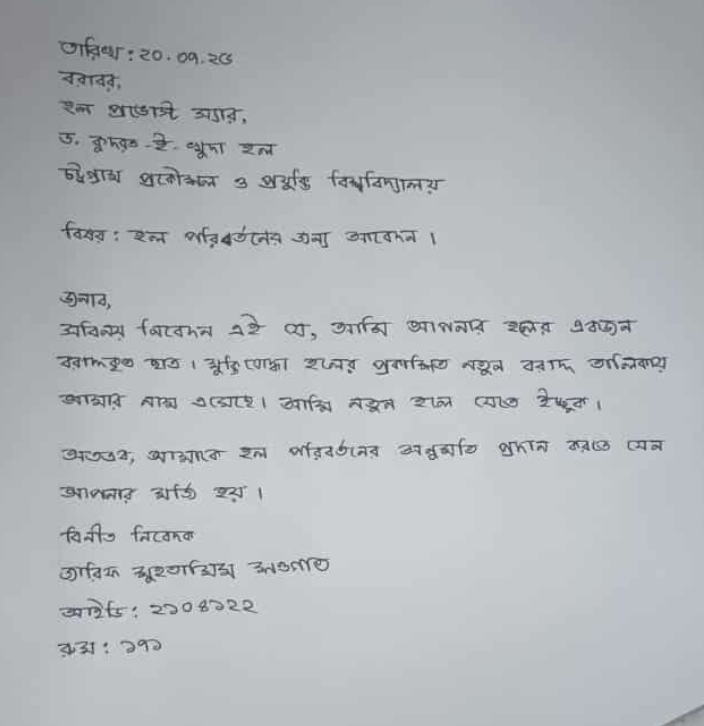 তারিখ: ২০.০৭.২৫
বরাবর,
হল প্রভোস্ট স্যার,
ড. কুদরত-ই-খুদা হল
চট্টগ্রাম প্রকৌশল ও প্রযুক্তি বিশ্ববিদ্যালয়
বিষয়: হল পরিবর্তনের জন্য আবেদন।
জনাব,
সবিনয় নিবেদন এই যে, আমি আপনার হলের একজন
বরাদ্দকৃত ছাত্র। মুক্তিযোদ্ধা হলের প্রকাশিত নতুন বরাদ্দ তালিকায়
আমার নাম এসেছে। আমি নতুন হলে যেতে ইচ্ছুক।
অতএব, আমাকে হল পরিবর্তনের অনুমতি প্রদান করতে যেন
আপনার মর্জি হয়।
বিনীত নিবেদক
তারিফ মুহতামিম
আইডি: ২১০৪১২২
রুম: ১৭১